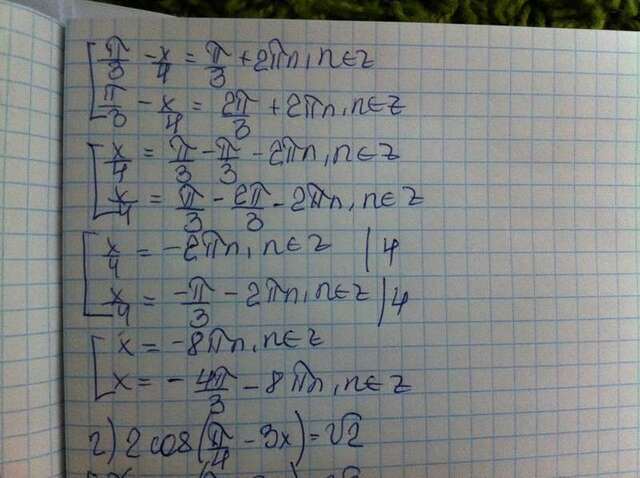 π/3 - x/4 = π/3 + 2πn, n∈z
π/3 - x/4 = 2π/3 + 2πn, n∈z
x/4 = π/3 - π/3 - 2πn, n∈z
x/4 = π/3 - 2π/3 - 2πn, n∈z
x/4 = -2πn, n∈z |4
x/4 = -π/3 - 2πn, n∈z |4
x = -8πn, n∈z
x = -4π/3 - 8πn, n∈z
г) 2 cos(π/4 - 3x) = √2